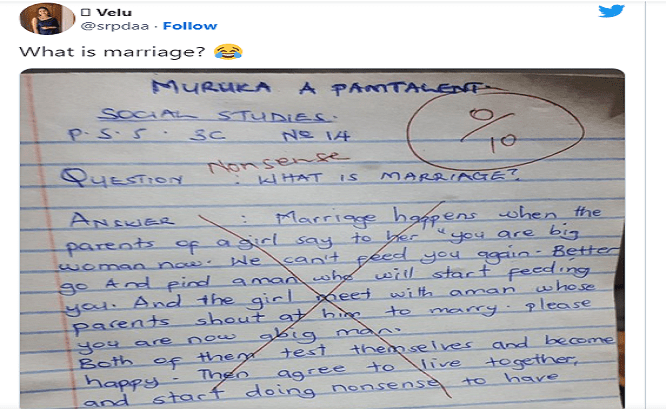 Velu
@srpdaa · Follow
What is marriage? 😂
MURUKA A PAMTALENT.
SOCIAL STUDIES.
P.S.5. 3C No 14
0/10
Nonsense
QUESTION : WHAT IS MARRIAGE?
ANSWER : Marriage happens when the
parents of a girl say to her "you are big
woman now. We can't feed you again. Better
go And find a man who will start feeding
you. And the girl meet with a man whose
parents shout at him to marry. please
you are now a big man.
Both of them test themselves and become
happy. Then agree to live together,
and start doing nonsense to have